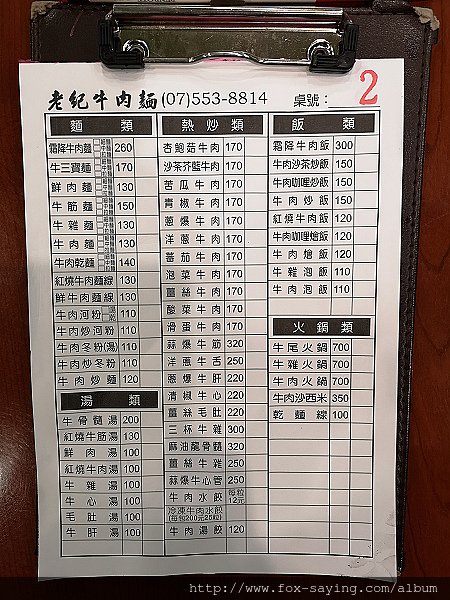 老紀牛肉麵 (07)553-8814 桌號： 2
麵 類
霜降牛肉麵 260
牛三寶麵 170
鮮肉麵 130
牛筋麵 150
牛雜麵 130
牛肉麵 130
牛肉乾麵 140
紅燒牛肉麵線 130
鮮牛肉麵線 130
牛肉河粉 110
牛肉炒河粉 110
牛肉冬粉(湯) 110
牛肉炒冬粉 110
牛肉炒麵 120
湯 類
牛骨髓湯 200
紅燒牛筋湯 130
鮮肉湯 100
紅燒牛肉湯 100
牛雜湯 100
牛心湯 100
毛肚湯 100
牛肝湯 100
熱炒類
杏鮑菇牛肉 170
沙茶芥藍牛肉 170
苦瓜牛肉 170
青椒牛肉 170
蔥爆牛肉 170
洋蔥牛肉 170
蕃茄牛肉 170
泡菜牛肉 170
薑絲牛肉 170
酸菜牛肉 170
滑蛋牛肉 170
蒜爆牛筋 320
洋蔥牛舌 250
蔥爆牛肝 220
清椒牛心 220
薑絲毛肚 220
三杯牛雜 300
麻油龍骨髓 320
薑絲牛雜 250
蒜爆牛心管 250
牛肉水餃 每粒12元
冷凍牛肉水餃
(每包200元20粒)
牛肉湯餃 120
飯 類
霜降牛肉飯 300
牛肉沙茶炒飯 150
牛肉咖哩炒飯 150
牛肉炒飯 150
紅燒牛肉飯 120
牛肉咖哩燴飯 120
牛肉燴飯 120
牛雜泡飯 110
牛肉泡飯 110
火鍋類
牛尾火鍋 700
牛雜火鍋 700
牛肉火鍋 700
牛肉沙西米 350
乾麵線 100
http://www.fox-saying.com/album